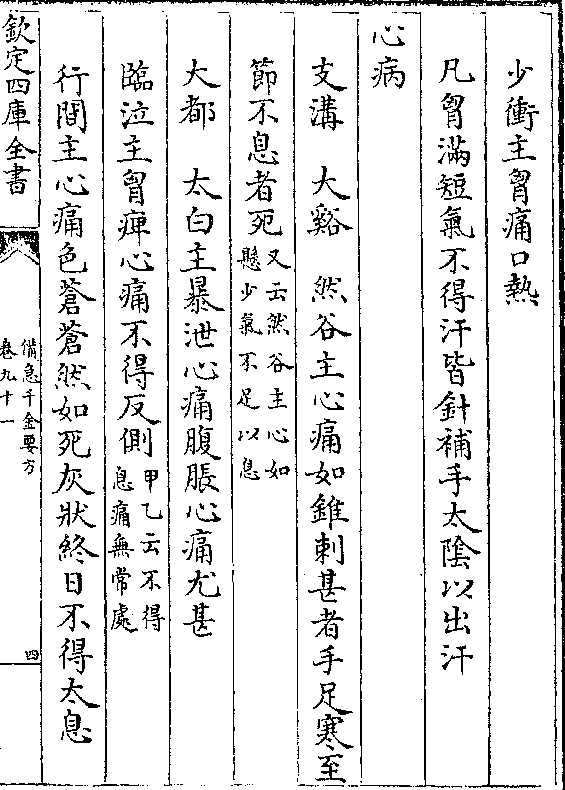 少衝主胷痛口熱
凡胷滿短氣不得汗皆針補手太陰以出汗
心病
支溝　大谿　然谷主心痛如錐刺甚者手足寒至
節不息者死又云然谷主心如
懸少氣不足以息
大都　太白主暴泄心痛腹脹心痛尤甚
臨泣主胷痺心痛不得反側甲乙云不得
息痛無常處
行間主心痛色蒼蒼然如死灰狀終日不得太息
欽定四庫全書
備急千金要方
卷九十一
四